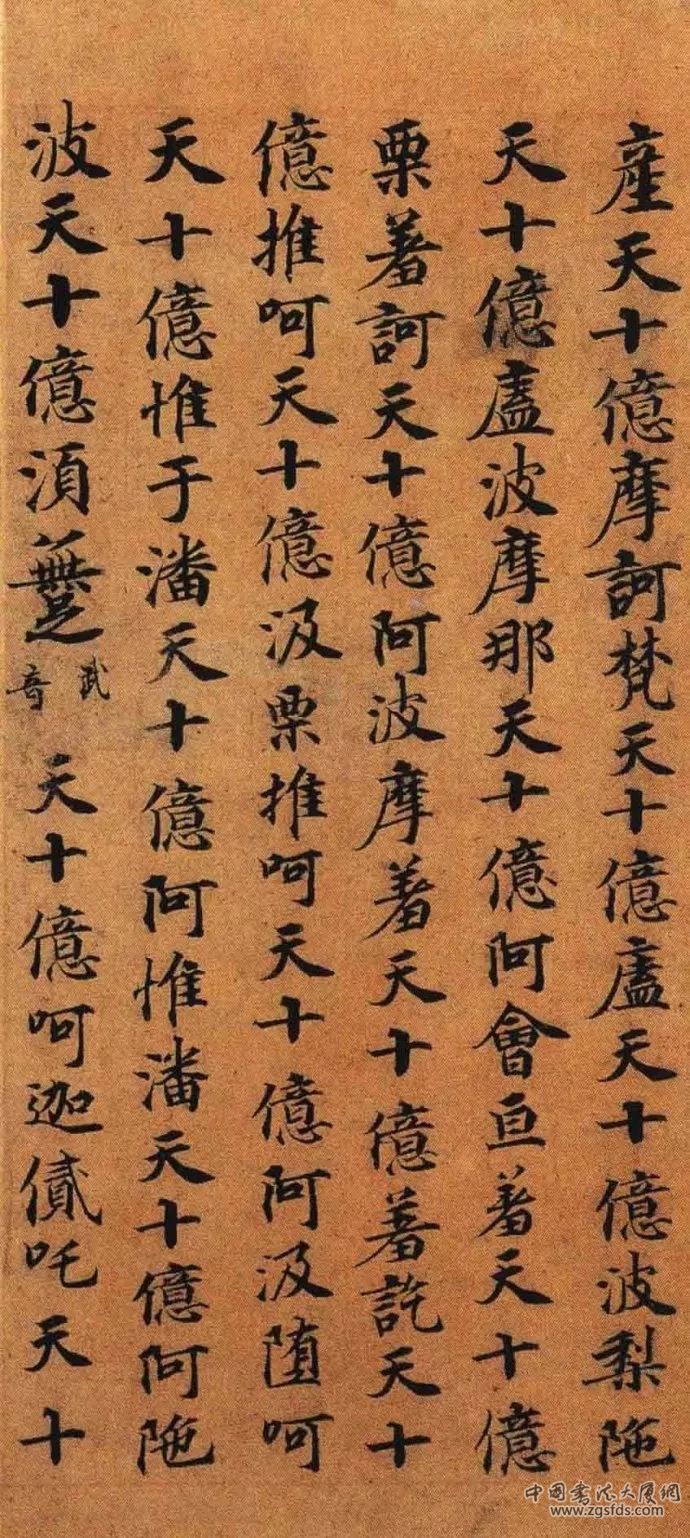 産天十億摩訶梵天十億廬天十億波梨陁
天十億廬波摩那天十億阿會亘著天十億
栗著訶天十億阿波摩著天十億著訖天十
億推呵天十億汲栗推呵天十億阿汲墮呵
天十億惟于潘天十億阿惟潘天十億阿陁
波天十億須
武音
天十億呵迦貳吒天十
中国书法大厦網
www.zgsfds.com